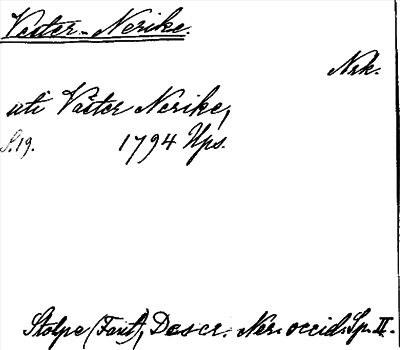 Väster-Nerike.
Nrk.
uti Väster Nerike,
S.19. 1794 Ups.
Stolpe (Fant), Descr. Ner. occid. Sp. II.